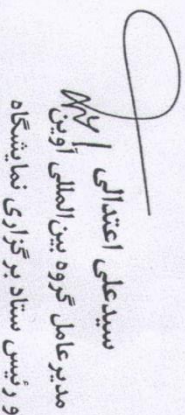 سیدعلی اعتدالی
مدیرعامل گروه بین‌المللی آوین
و رئیس ستاد برگزاری نمایشگاه